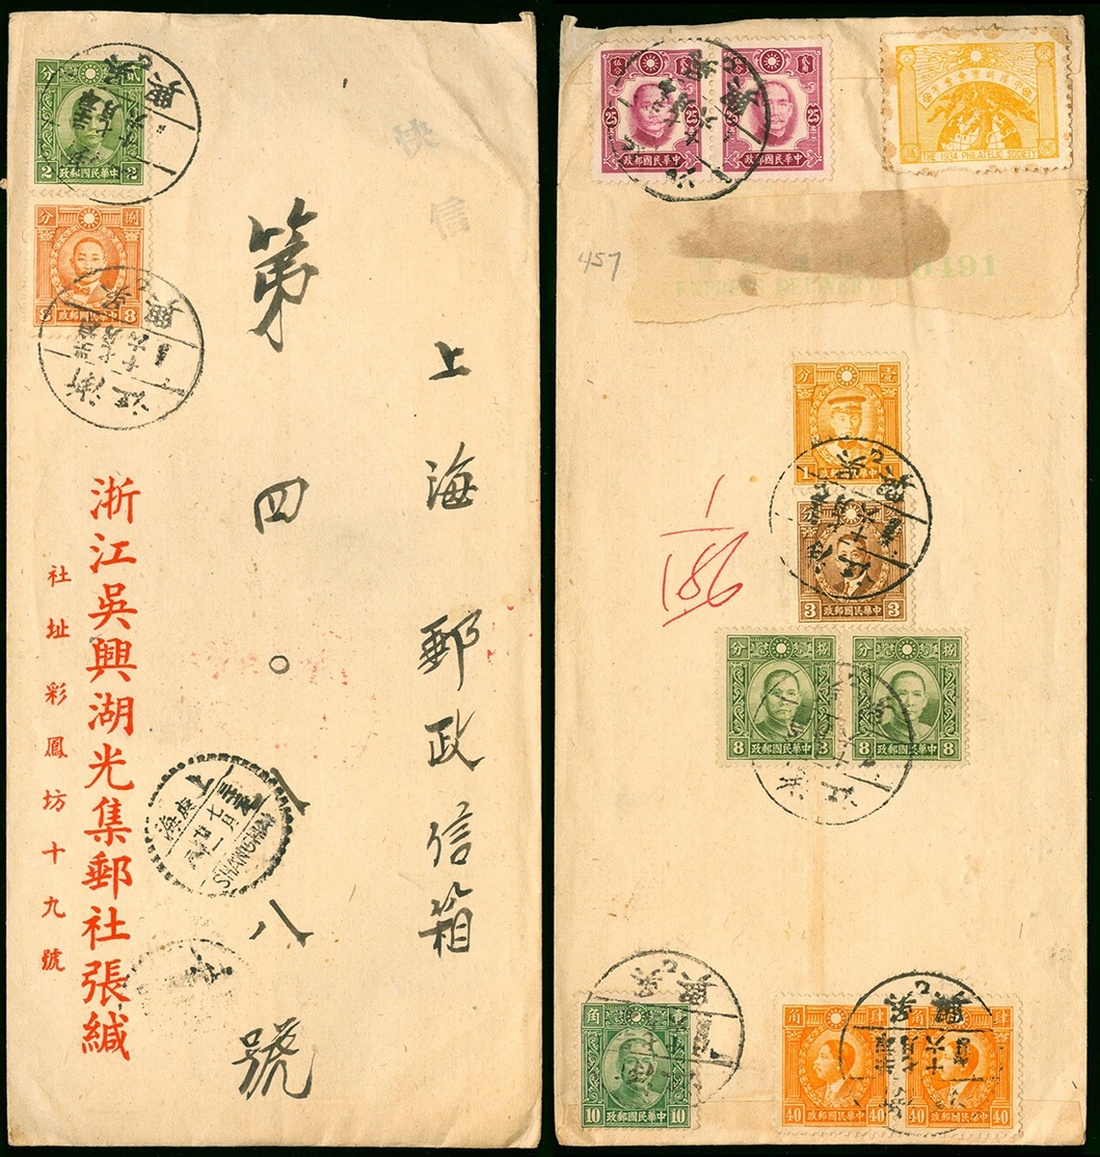 快信
上海郵政信箱
第四〇八八號
浙江吳興湖光集郵社張緘
社址彩鳳坊十九號
分 貳
2 2
中華民國郵政
分 捌
8 8
中華民國郵政
吳興
浙江
上海
SHANGHAI
25 25
中華民國郵政
25 25
中華民國郵政
THE 1934 PHILATELIC SOCIETY
457
EXPRESS DELIVERY
0491
分 壹
1
分
3 3
中華民國郵政
1
186
分
8 8
中華民國郵政
捌
8 8
中華民國郵政
角
10 10
中華民國郵政
角 肆
40 40
中華民國郵政
角 肆
40 40
中華民國郵政
吳興